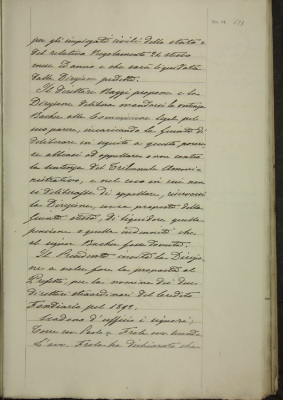 per gli impiegati civili dello stato e
del relativo Regolamento 24 stesso
mese ed anno e che sarà liquidata
dalla Direzione predetta.
Il Direttore Poggi propone e la
Direzione delibera mandarsi la vertenza
Bacher alla Commissione legale pel
suo parere, incaricando la Giunta di
deliberare in seguito a questo parere,
se abbiasi ad appellare o non contro
la sentenza del Tribunale Ammi-
nistrativo, e nel caso in cui non
si deliberasse di appellare, riservarsi
la Direzione, su proposta della
Giunta stessa, di liquidare quella
pensione o quella indennità che
al signor Bacher fosse dovuta.
Il Presidente invita la Direzio-
ne a voler fare la proposta al
Prefetto per la nomina dei due
Direttori straordinari del Credito
Fondiario pel 1892.
Scadono d'ufficio i signori:
Torre cav. Paolo e Frola avv. Secondo
L'avv. Frola ha dichiarato che